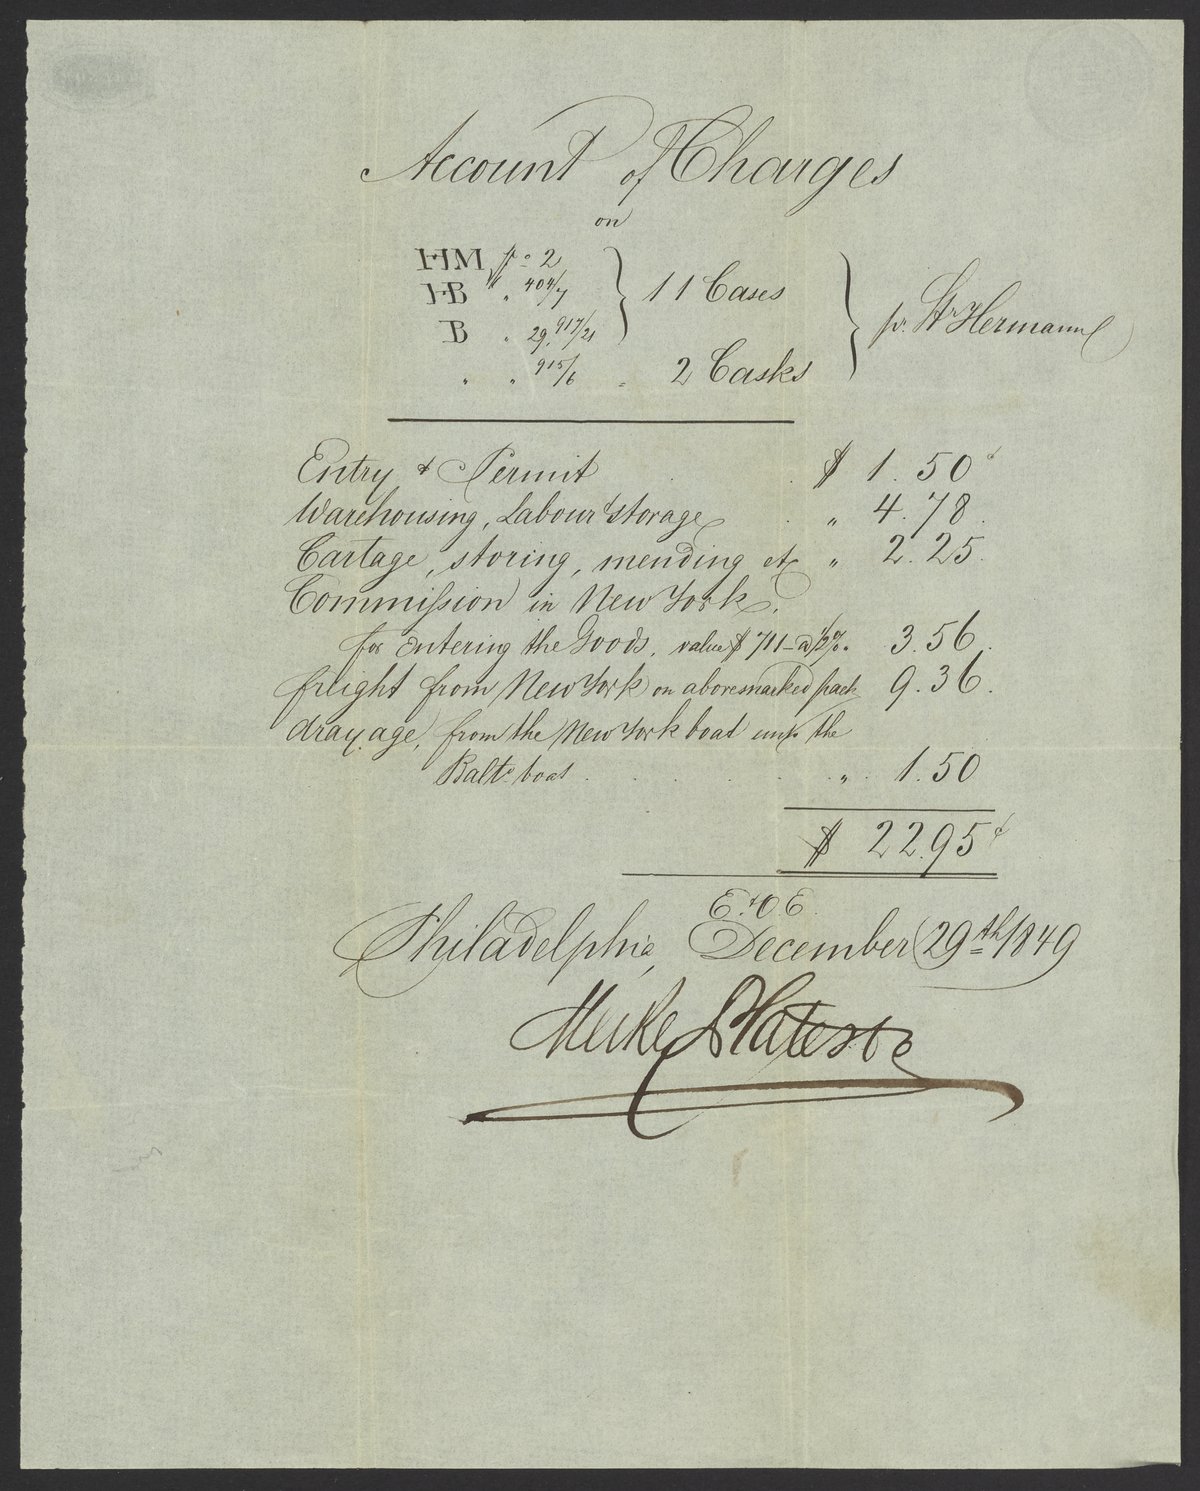 Account of Charges
on
HM No 2
HB " 404/7 11 Cases
B " 29. 917/21 pr. Str Hermann
" " 915/6 = 2 Casks
Entry & Permit $ 1.50 c
Warehousing, Labour & storage " 4.78.
Cartage, storing, mending etc " 2.25.
Commission in New York,
for entering the Goods, value $ 711 - a 1/2 %. 3.56.
freight from New York on abovemarked pack 9.36.
drayage, from the New York boat unto the
Balto boat " 1.50
$ 22.95 c
E. & O. E.
Philadelphia, December 29th 1849